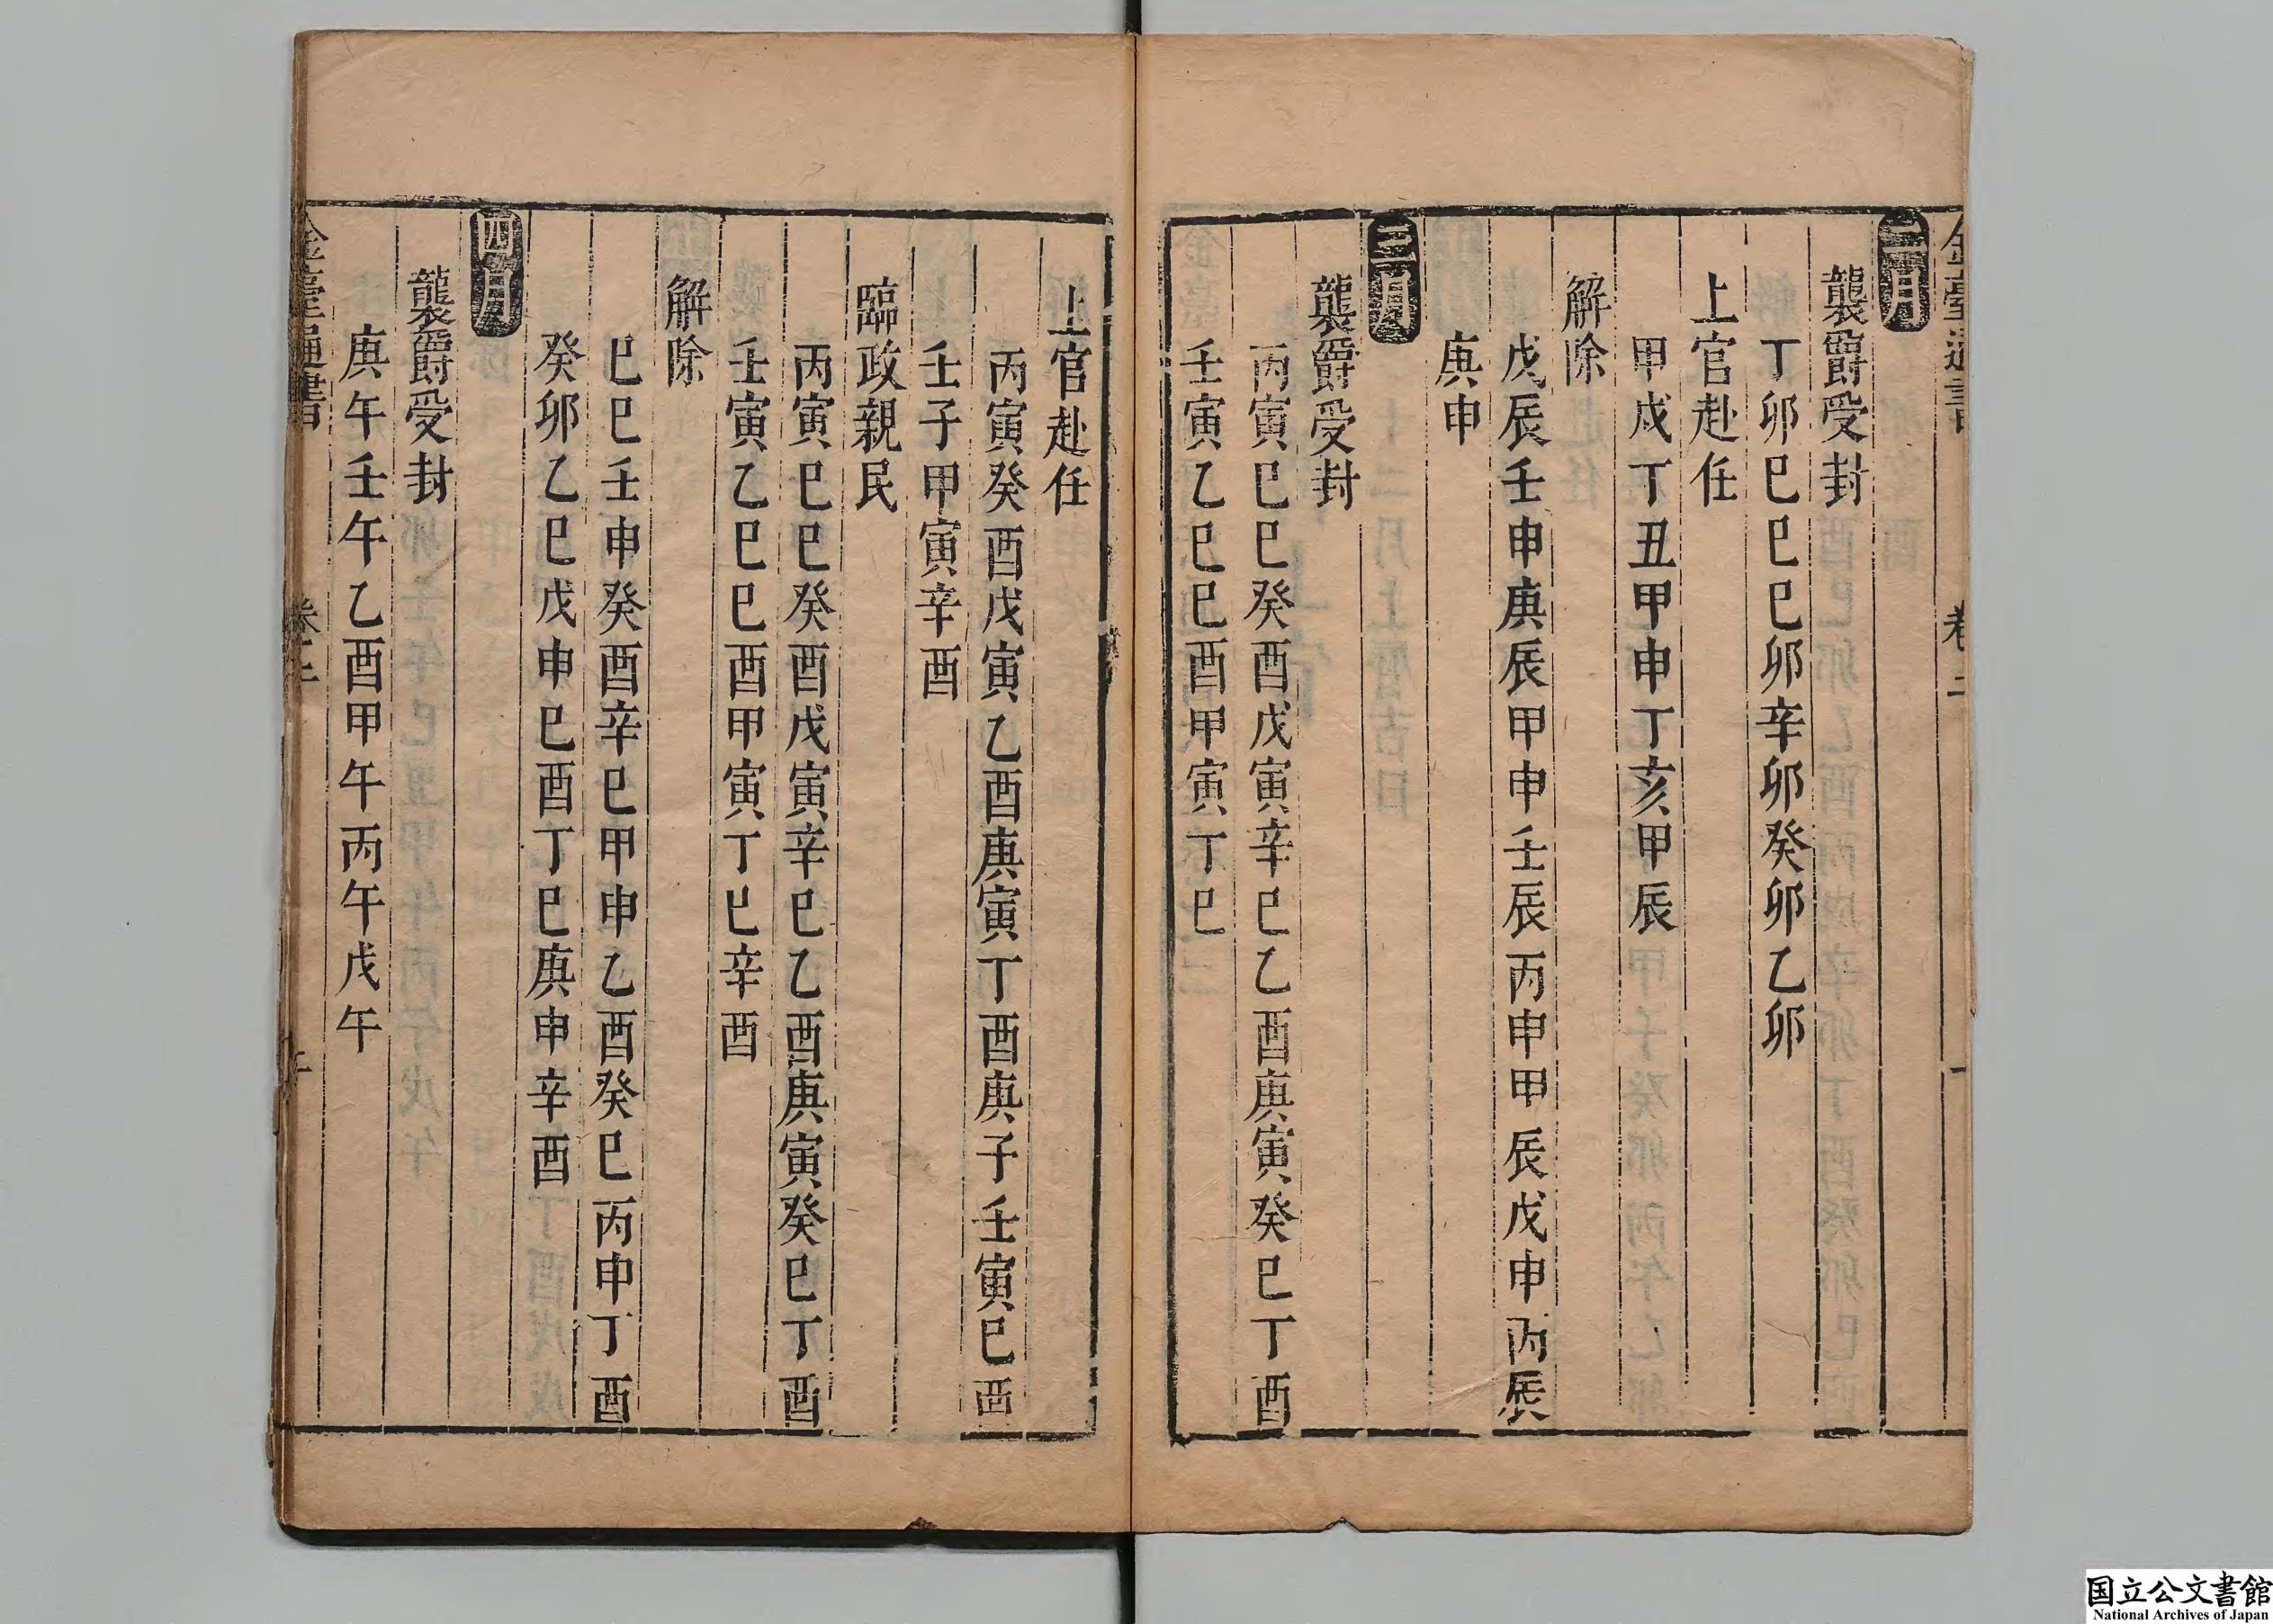 金臺通書
卷二
二月
襲爵受封
丁卯巳巳巳卯辛卯癸卯乙卯
上官赴任
甲戌丁丑甲申丁亥甲辰
解除
戊辰壬申庚辰甲申壬辰丙申甲辰戊申丙辰
庚申
三月
襲爵受封
丙寅巳巳癸酉戊寅辛巳乙酉庚寅癸巳丁酉
壬寅乙巳巳酉甲寅丁巳
上官赴任
丙寅癸酉戊寅乙酉庚寅丁酉庚子壬寅巳酉
壬子甲寅辛酉
臨政親民
丙寅巳巳癸酉戊寅辛巳乙酉庚寅癸巳丁酉
壬寅乙巳巳酉甲寅丁巳辛酉
解除
巳巳壬申癸酉辛巳甲申乙酉癸巳丙申丁酉
癸卯乙巳戊申巳酉丁巳庚申辛酉
四月
襲爵受封
庚午壬午乙酉甲午丙午戊午
金臺通書
卷二
国立公文書館
National Archives of Japan